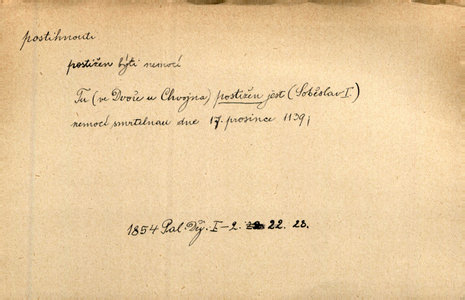 postihnouti
postižen býti nemocí
Tu (ve Dvoře u Chvojna) postižen jest (Soběslav I.)
nemocí smrtelnau dne 17. prosince 1139;
1854 Pal. Děj. I-2. 22. 23.